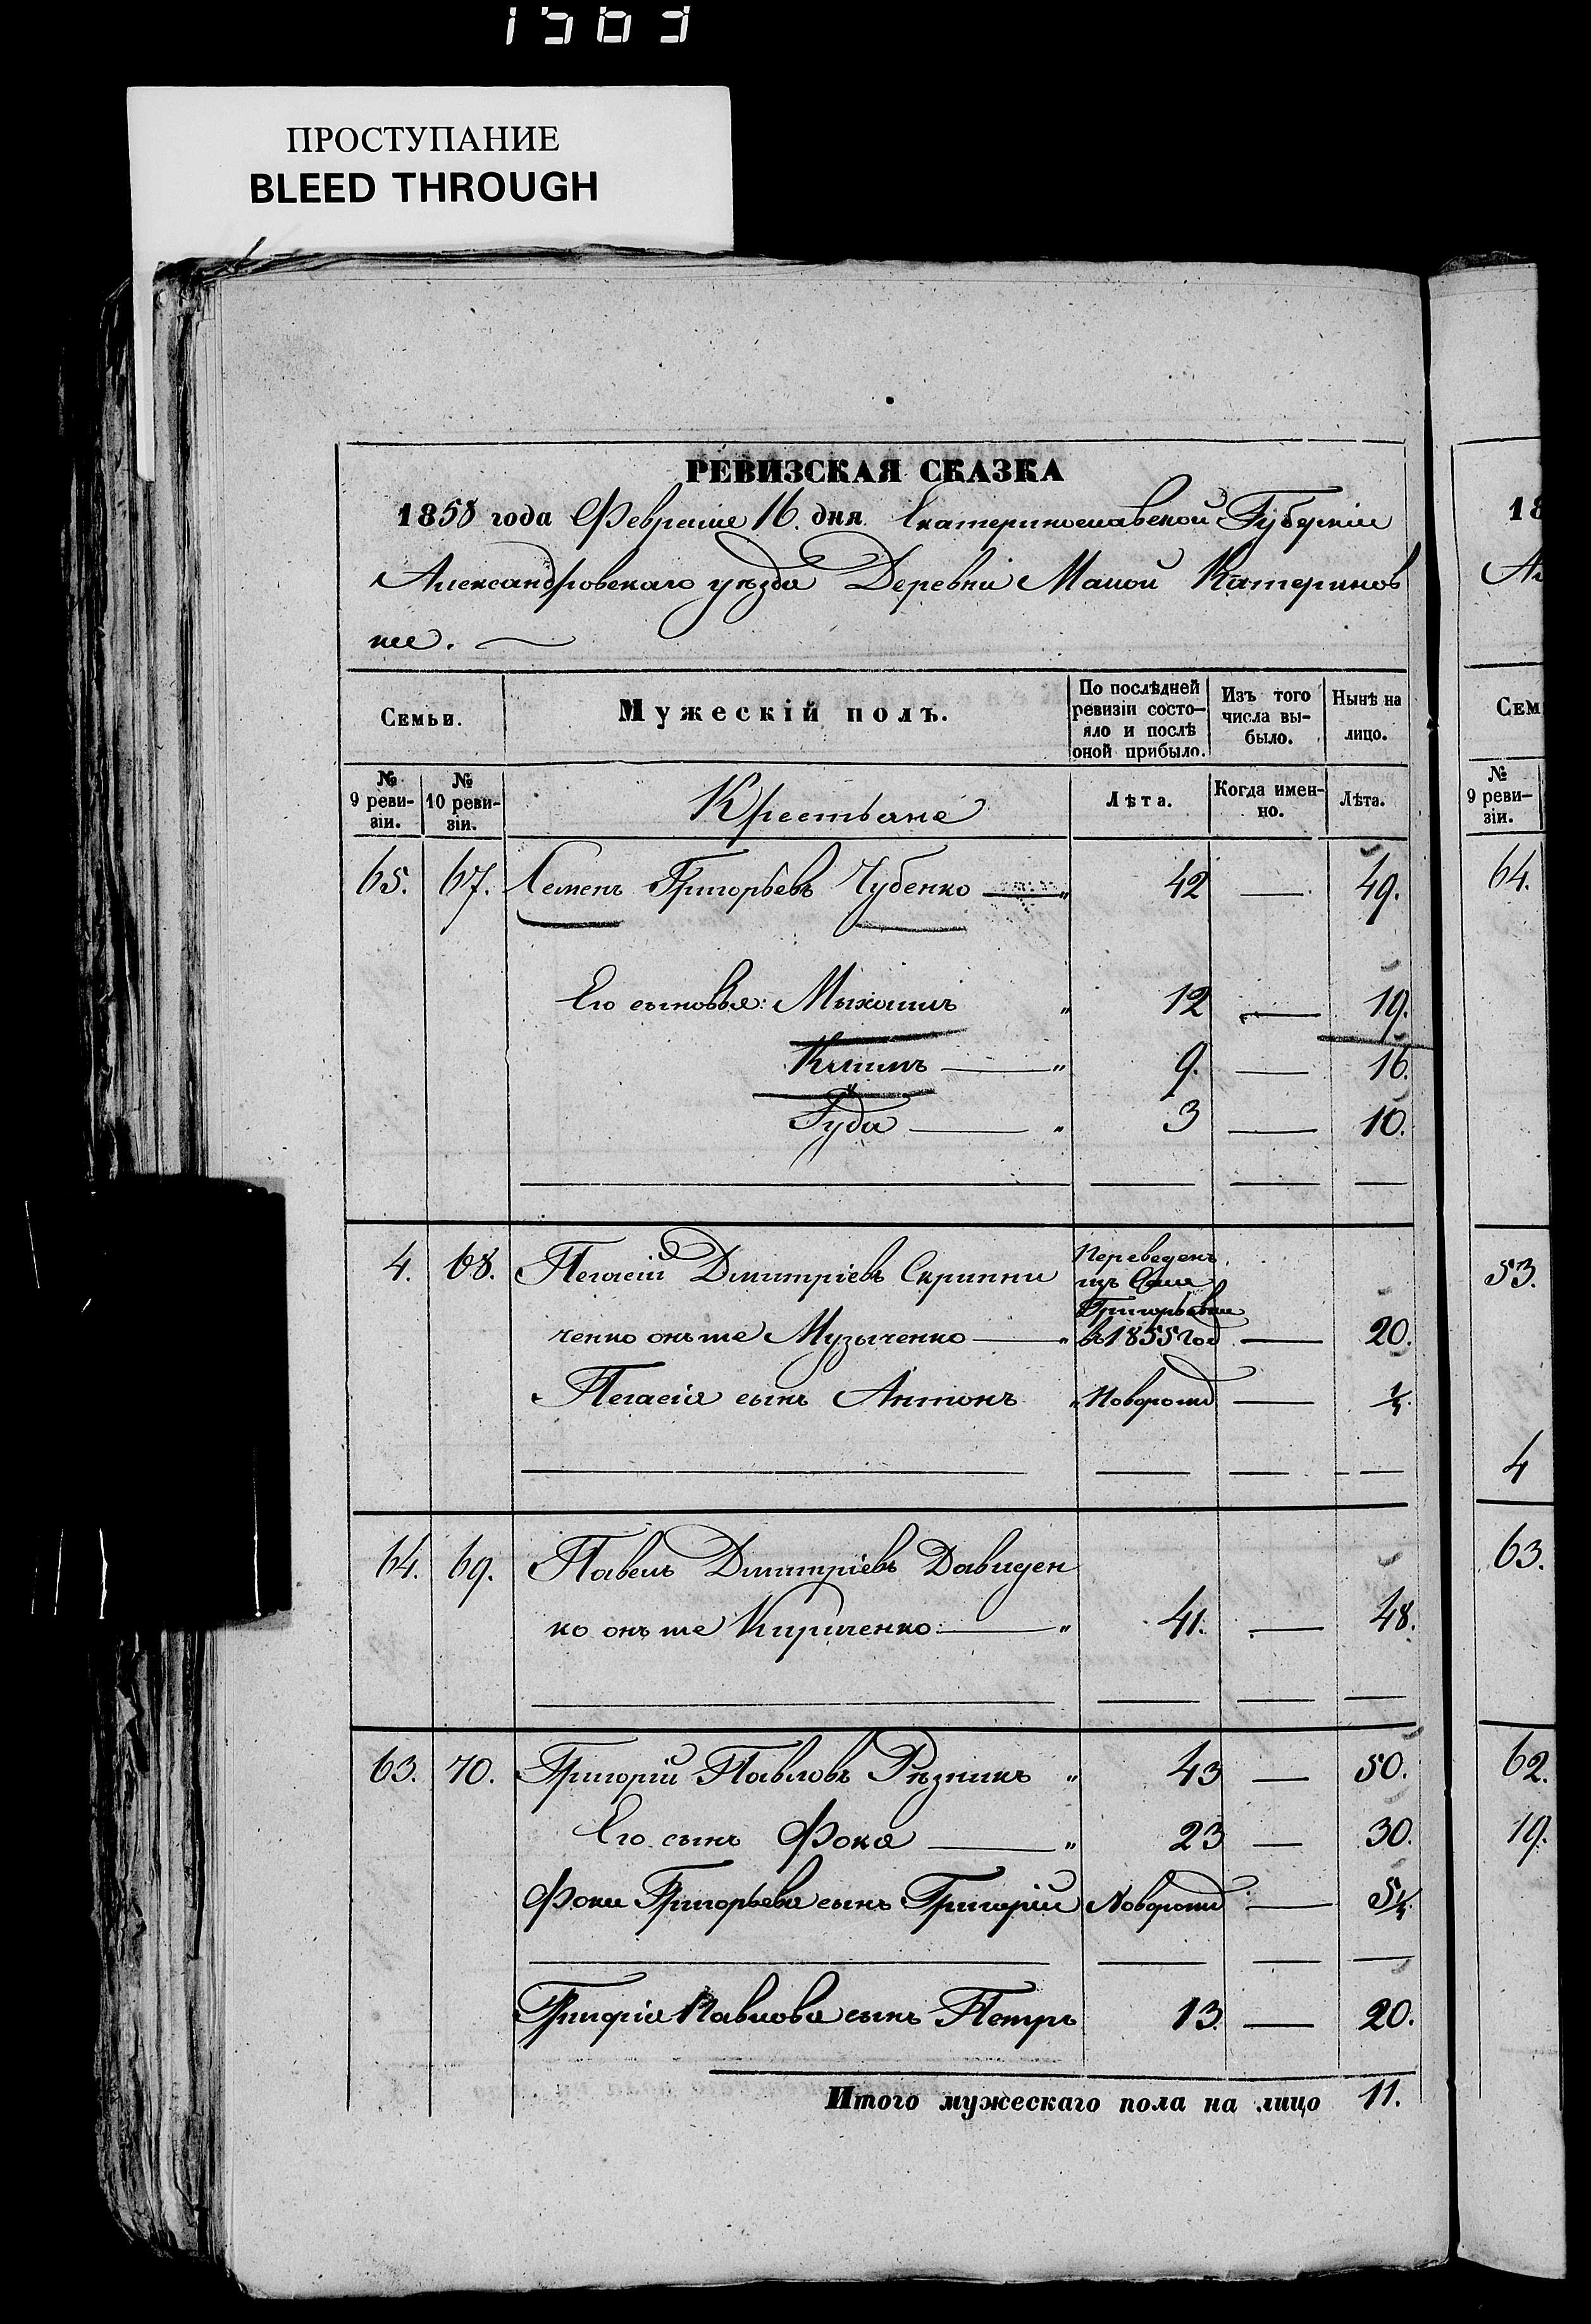 ПРОСТУПАНИЕ
BLEED THROUGH
РЕВИЗСКАЯ СКАЗКА
1858 года Февраля 16. дня. Екатеринославской Губерніи
Александровскаго уѣзда Деревни Малой Катеринов
ки.
Семьи.
Мужескій полъ.
По послѣдней ревизіи состо- яло и послѣ оной прибыло.
Изъ того числа вы- было.
Нынѣ на лицо.
№ 9 реви- зіи.
№ 10 реви- зіи.
Крестьяне
Лѣта.
Когда имен- но.
Лѣта.
65. 67. Семенъ Григорьевъ Чубенко 42 49.
Его сыновья: Михаилъ 12 19.
Климъ 9. 16.
Гуда 3 10.
4. 68. Пегасій Дмитріевъ Скрипни Переведенъ изъ Села Григорьевки
ченко онъ же Музыченко въ 1855 год 20.
Пегасія сынъ Антонъ Новорожд
64. 69. Павелъ Дмитріевъ Давиден
ко онъ же Кириченко 41. 48.
63. 70. Григорій Павловъ Рѣзникъ 43 50.
Его сынъ Фока 23 30.
Фоки Григорьева сынъ Григорій Новорожд
Григорія Павлова сынъ Петръ 13. 20.
Итого мужескаго пола на лицо 11.
18
Сем
№ 9 реви- зіи.
64.
53.
4
63.
62.
19.